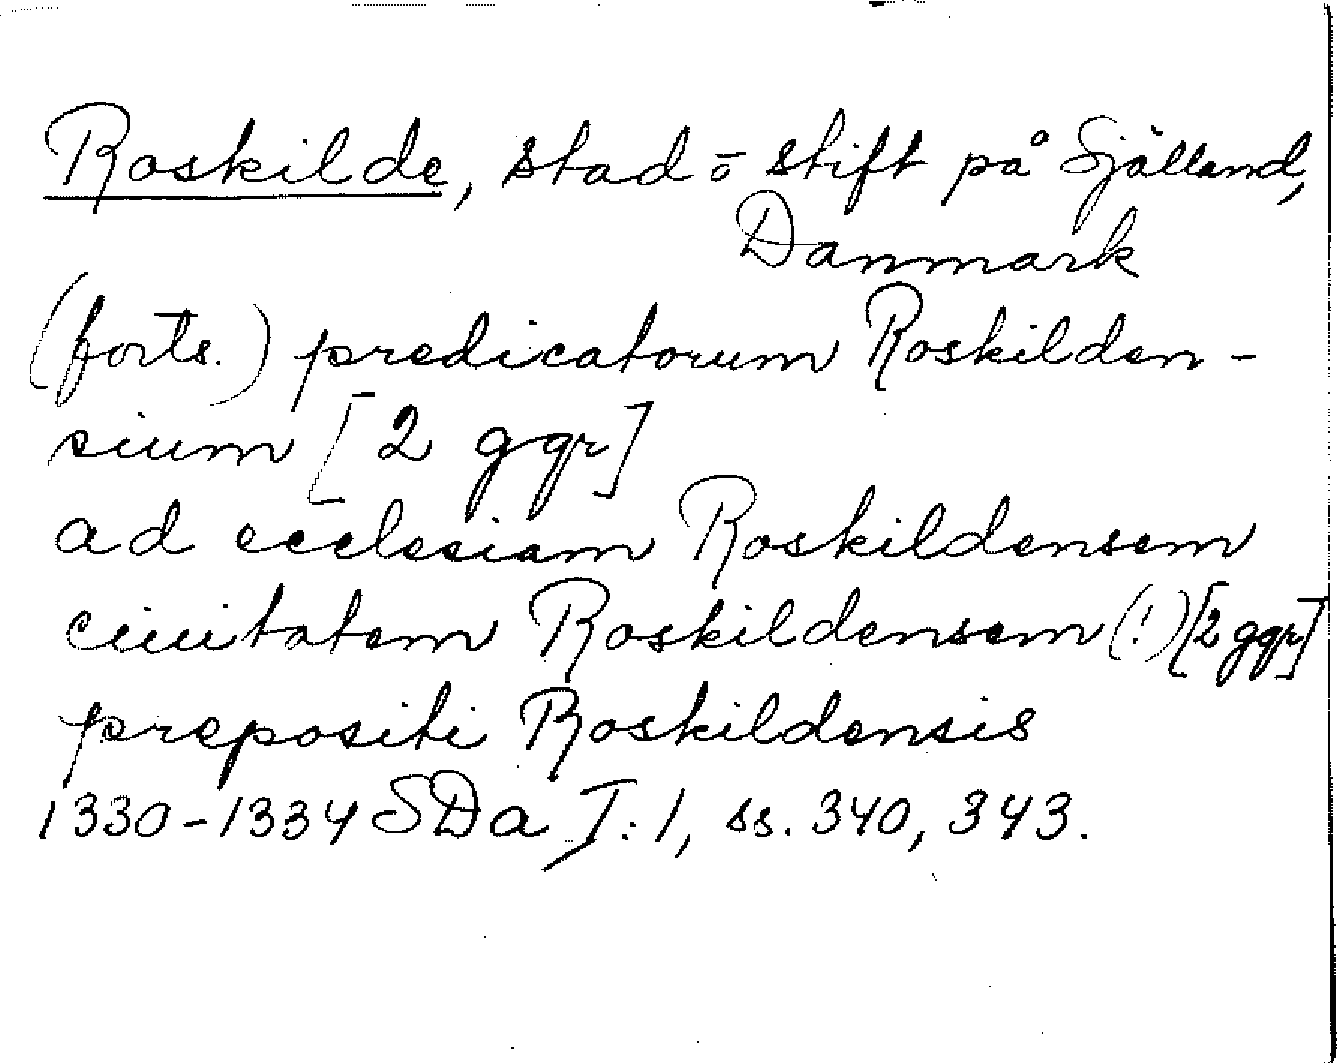 Roskilde, stad ō stift på Själland,
Danmark
(forts.) predicatorum Roskilden-
sium [2 ggr]
ad ecclesiam Roskildensem
ciuitatem Roskildensem (!) [2 ggr]
prepositi Roskildensis
1330-1334 SDa I:1, ss. 340, 343.